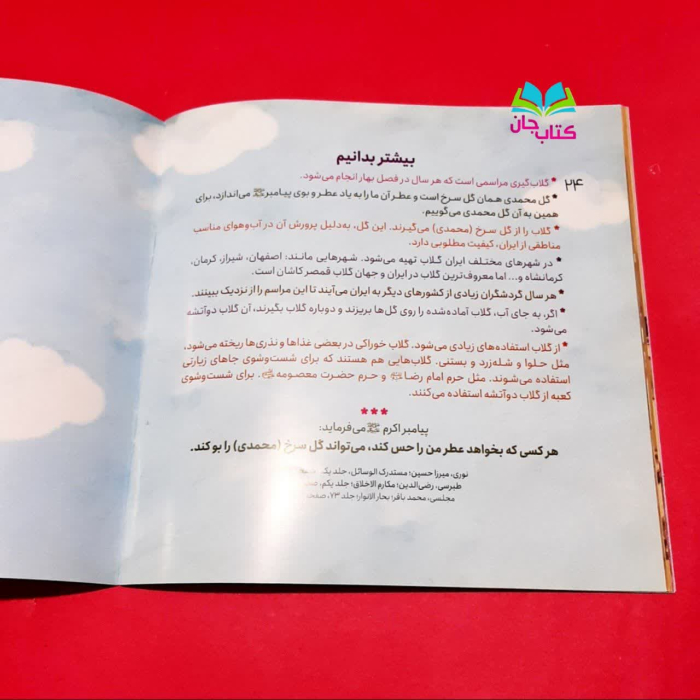 کتاب جان
بیشتر بدانیم
۲۴
* گلاب‌گیری مراسمی است که هر سال در فصل بهار انجام می‌شود.
* گل محمدی همان گل سرخ است و عطر آن ما را به یاد عطر و بوی پیامبر ﷺ می‌اندازد، برای
همین به آن گل محمدی می‌گوییم.
* گلاب را از گل سرخ (محمدی) می‌گیرند. این گل، به‌دلیل پرورش آن در آب‌وهوای مناسب
مناطقی از ایران، کیفیت مطلوبی دارد.
* در شهرهای مختلف ایران گلاب تهیه می‌شود. شهرهایی مانند: اصفهان، شیراز، کرمان،
کرمانشاه و... اما معروف‌ترین گلاب در ایران و جهان گلاب قمصر کاشان است.
* هر سال گردشگران زیادی از کشورهای دیگر به ایران می‌آیند تا این مراسم را از نزدیک ببینند.
* اگر، به جای آب، گلاب آماده‌شده را روی گل‌ها بریزند و دوباره گلاب بگیرند، آن گلاب دوآتشه
می‌شود.
* از گلاب استفاده‌های زیادی می‌شود. گلاب خوراکی در بعضی غذاها و نذری‌ها ریخته می‌شود،
مثل حلوا و شله‌زرد و بستنی. گلاب‌هایی هم هستند که برای شست‌وشوی جاهای زیارتی
استفاده می‌شوند. مثل حرم امام رضا و حرم حضرت معصومه. برای شست‌وشوی
کعبه از گلاب دوآتشه استفاده می‌کنند.
***
پیامبر اکرم ﷺ می‌فرماید:
هر کسی که بخواهد عطر من را حس کند، می‌تواند گل سرخ (محمدی) را بو کند.
نوری، میرزا حسین؛ مستدرک الوسائل، جلد یک
طبرسی، رضی‌الدین؛ مکارم الاخلاق؛ جلد یکم،
مجلسی، محمد باقر؛ بحار الانوار؛ جلد ۷۳، صفحه